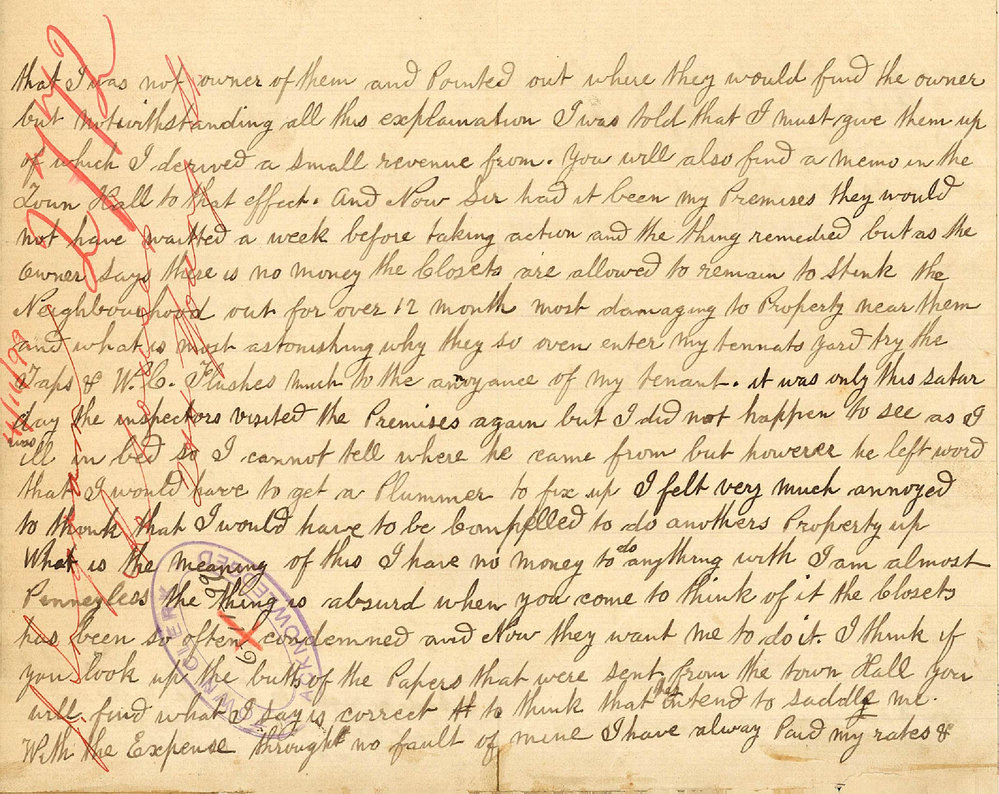 that I was not owner of them and Pointed out where they would find the owner
but notwithstanding all this explaination I was told that I must give them up
of which I derived a small revenue from. You will also find a memo in the
Town Hall to that effect. And Now Sir had it been my Premises they would
not have waitted a week before taking action and the thing remedied but as the
Owner says there is no money the Closets are allowed to remain to Stink the
Neighbourhood out for over 12 month most damaging to Property near them
and what is most astonishing why they so oven enter my tennats yard try the
Taps & W.C. Flushes much to the anoyance of my tenant. it was only this satur
day the inspectors visited the Premises again but I did not happen to see as I
was
ill in bed so I cannot tell where he came from but howerer he left word
that I would have to get a Plummer to fix up I felt very much annoyed
to think that I would have to be Compelled to do anothers Property up
What is the meaning of this I have no money to do anything with I am almost
Penneyless the thing is absurd when you come to think of it the Closets
has been so often condemned and Now they want me to do it. I think if
you look up the buth of the Papers that were sent from the town Hall you
will find what I say is correct to think that the intend to saddle me.
With the Expense throught no fault of mine I have alway Paid my rates &
TOWN CLERK
ACKNOWLEDGED